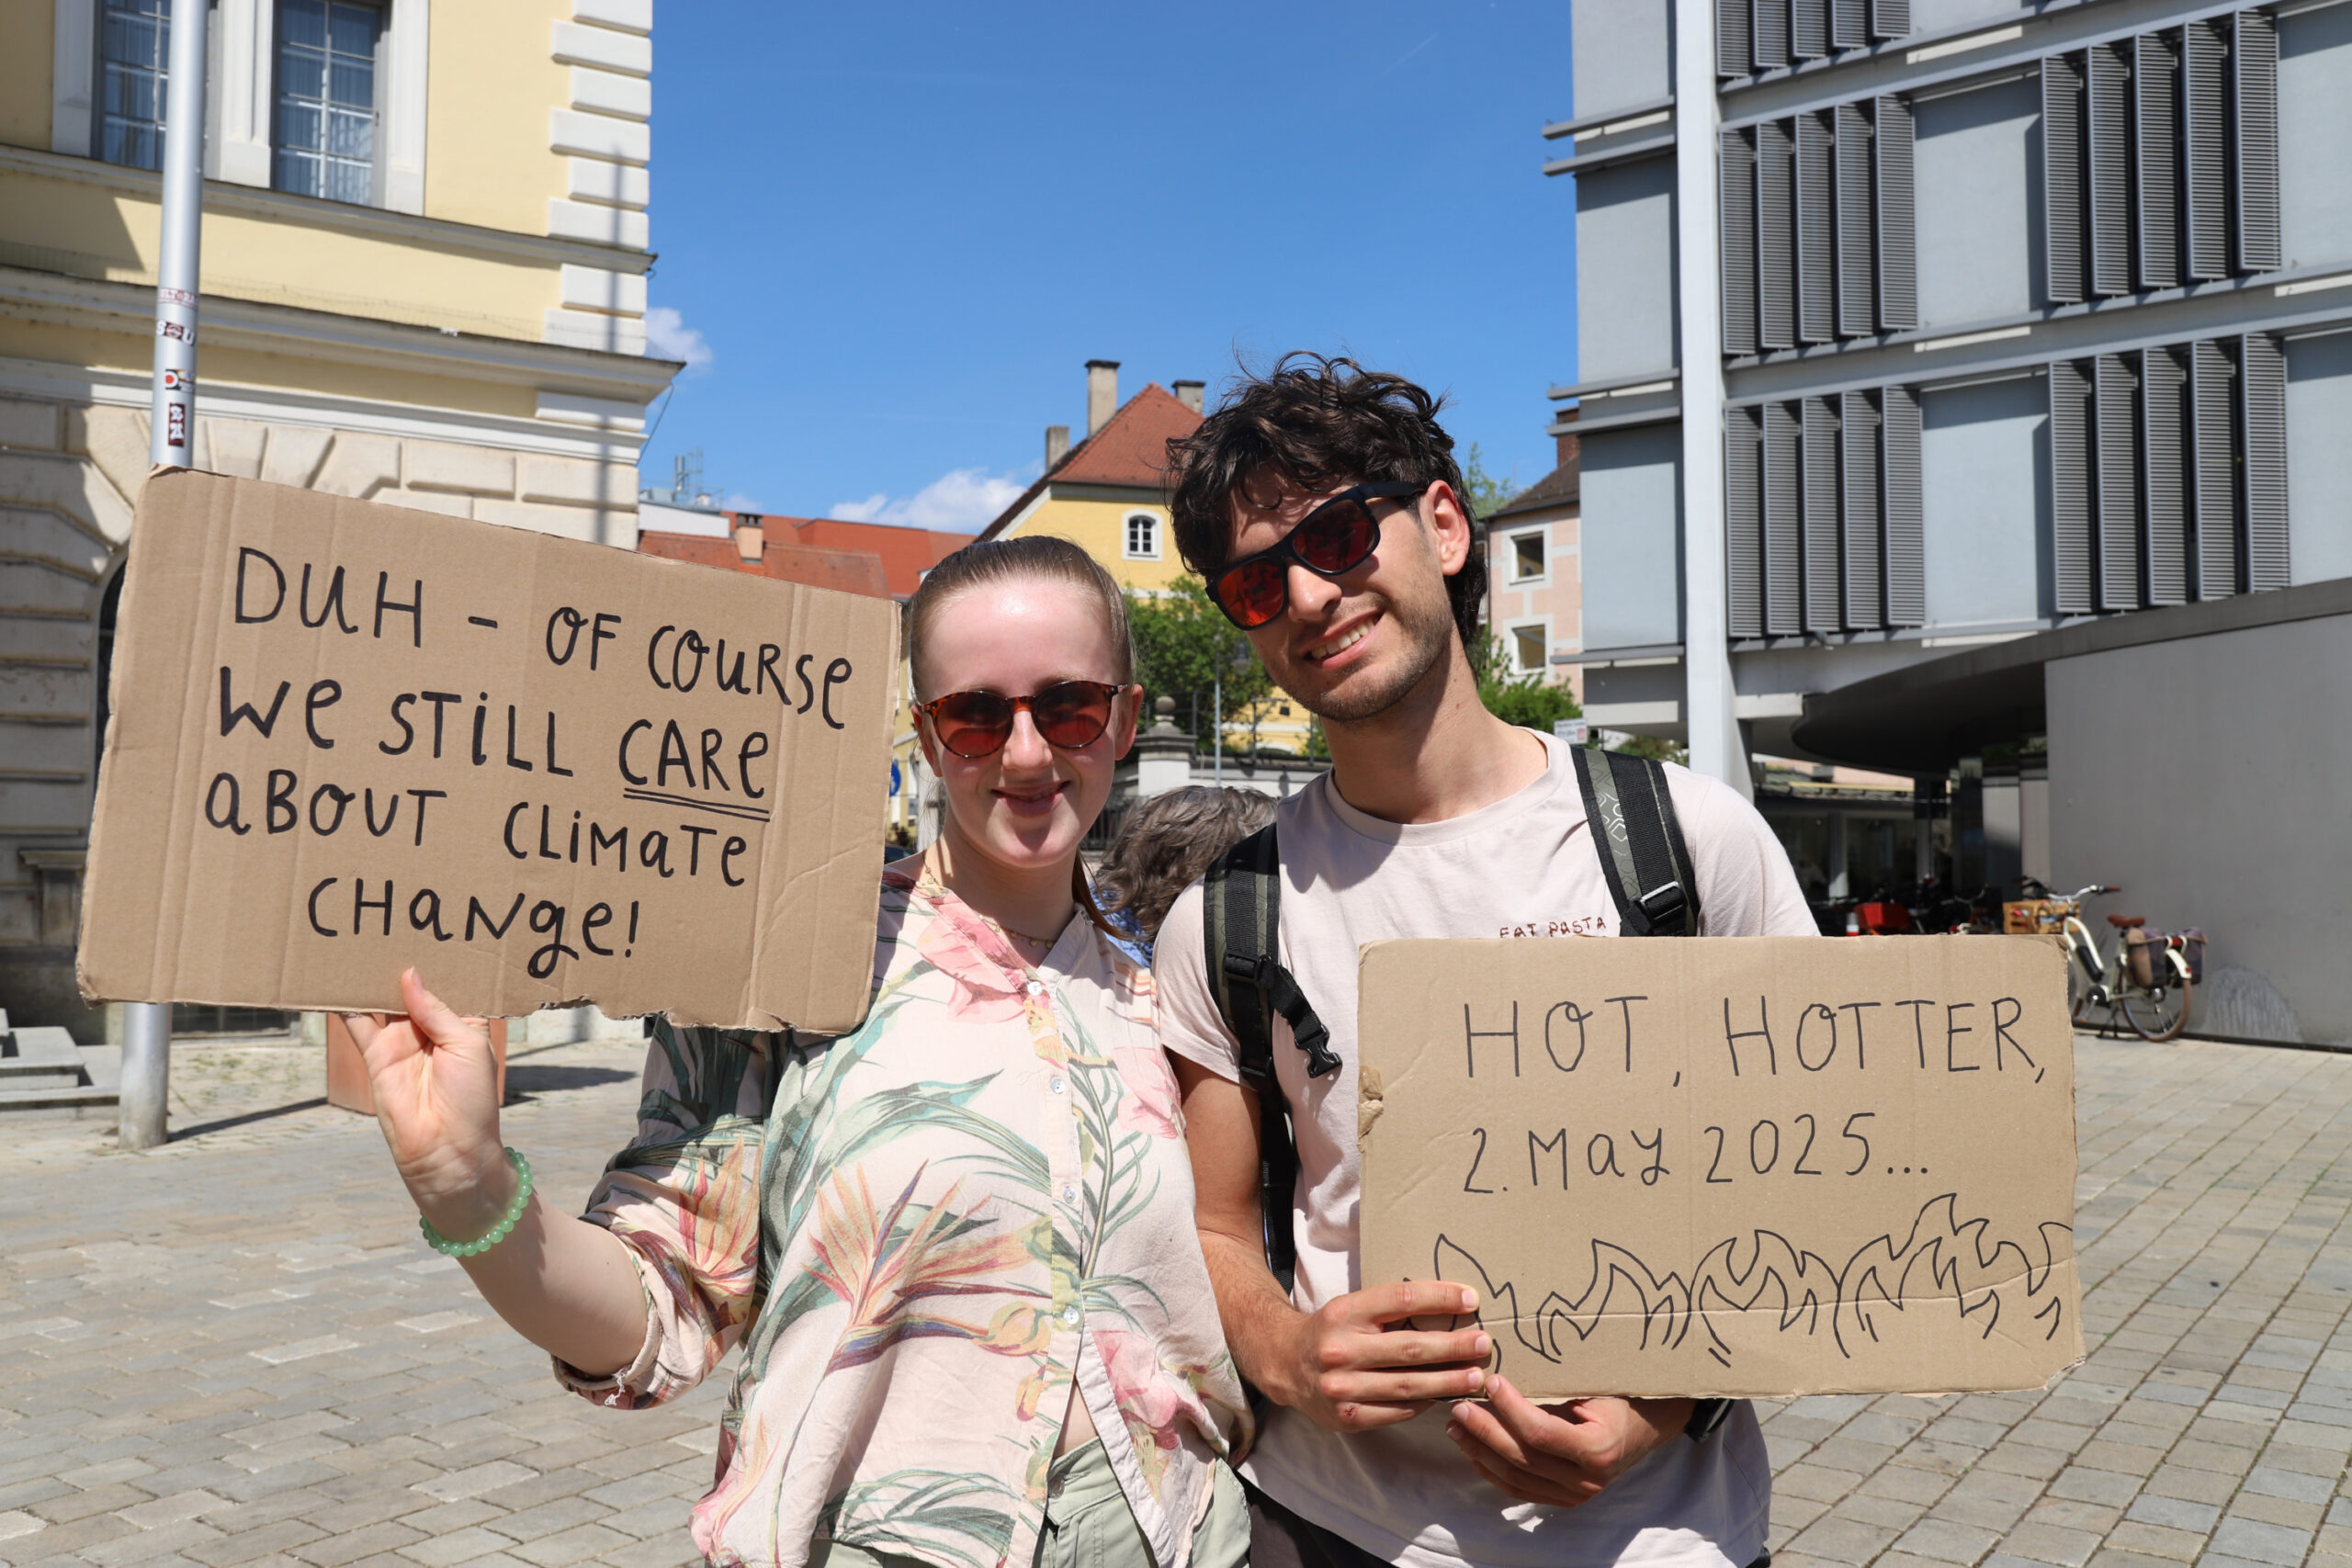 DUH - OF COURSE
We STiLL CARe
aBOUT CLiMaTe
CHaNge!
EAT PASTA
HOT, HOTTER,
2. May 2025...